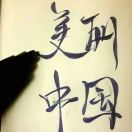 美丽
中国